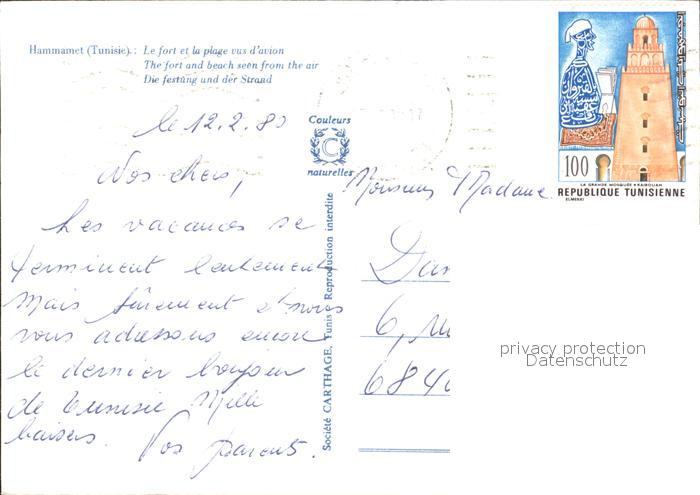 Hammamet (Tunisie).: Le fort et la plage vus d'avion
The fort and beach seen from the air
Die festung und der Strand
le 12.2.80
Nos chers,
Les vacances se
terminent lentement
mais sûrement et nous
vous adressons encore
le dernier bonjour
de Tunisie Mille
baisers. Vos parents.
Couleurs
C
naturelles
Société CARTHAGE, Tunis Reproduction interdite
Monsieur Madame
6,
100
LA GRANDE MOSQUÉE KAIROUAN
REPUBLIQUE TUNISIENNE
ELMEKKI
privacy protection
Datenschutz